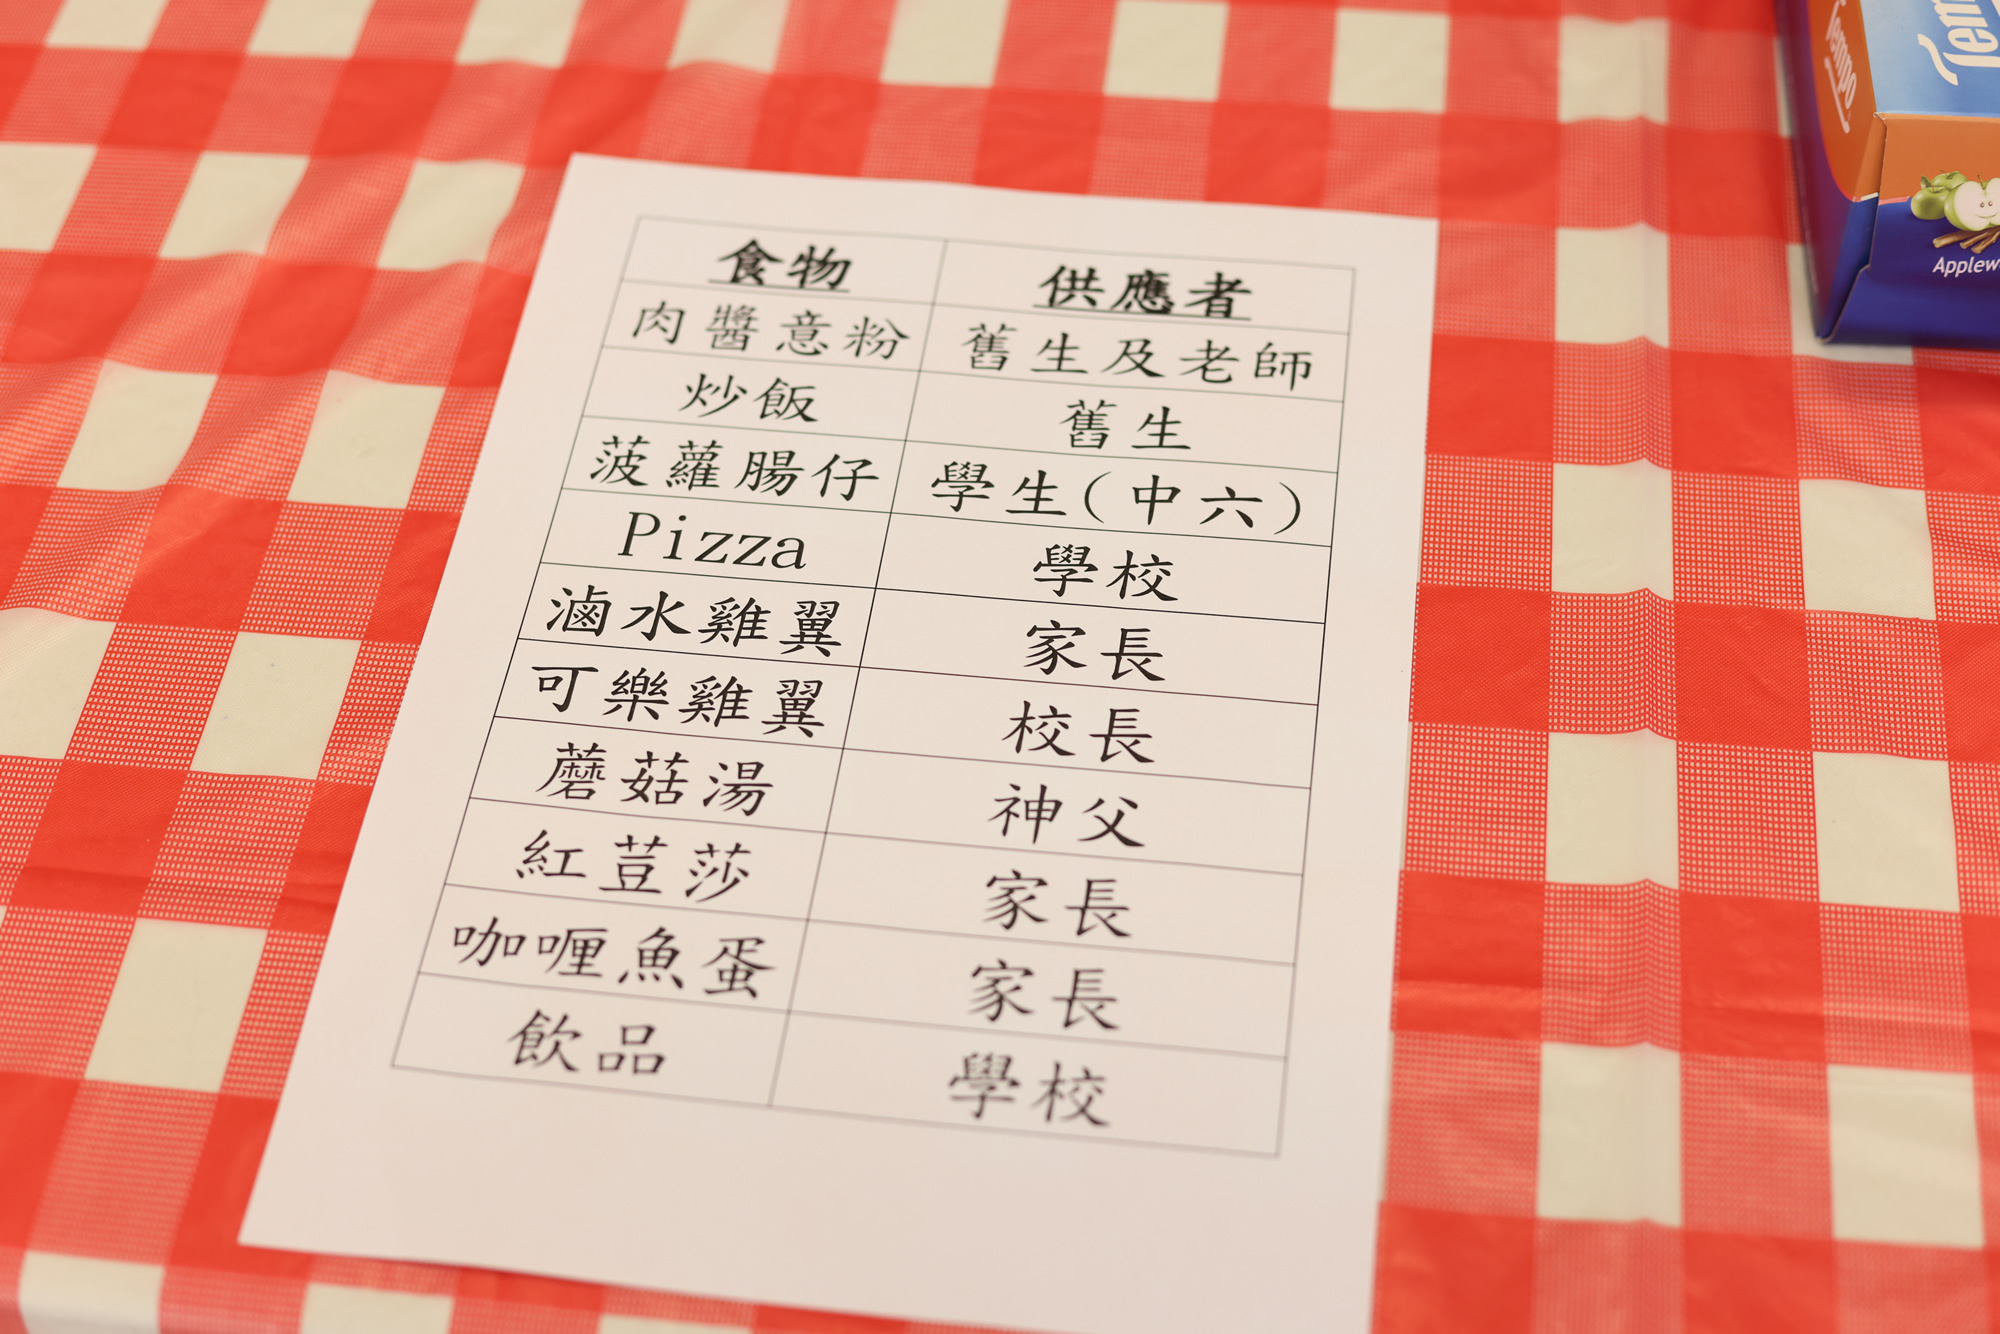 食物 供應者
肉醬意粉 舊生及老師
炒飯 舊生
菠蘿腸仔 學生(中六)
Pizza 學校
滷水雞翼 家長
可樂雞翼 校長
蘑菇湯 神父
紅荳莎 家長
咖喱魚蛋 家長
飲品 學校
Tempo